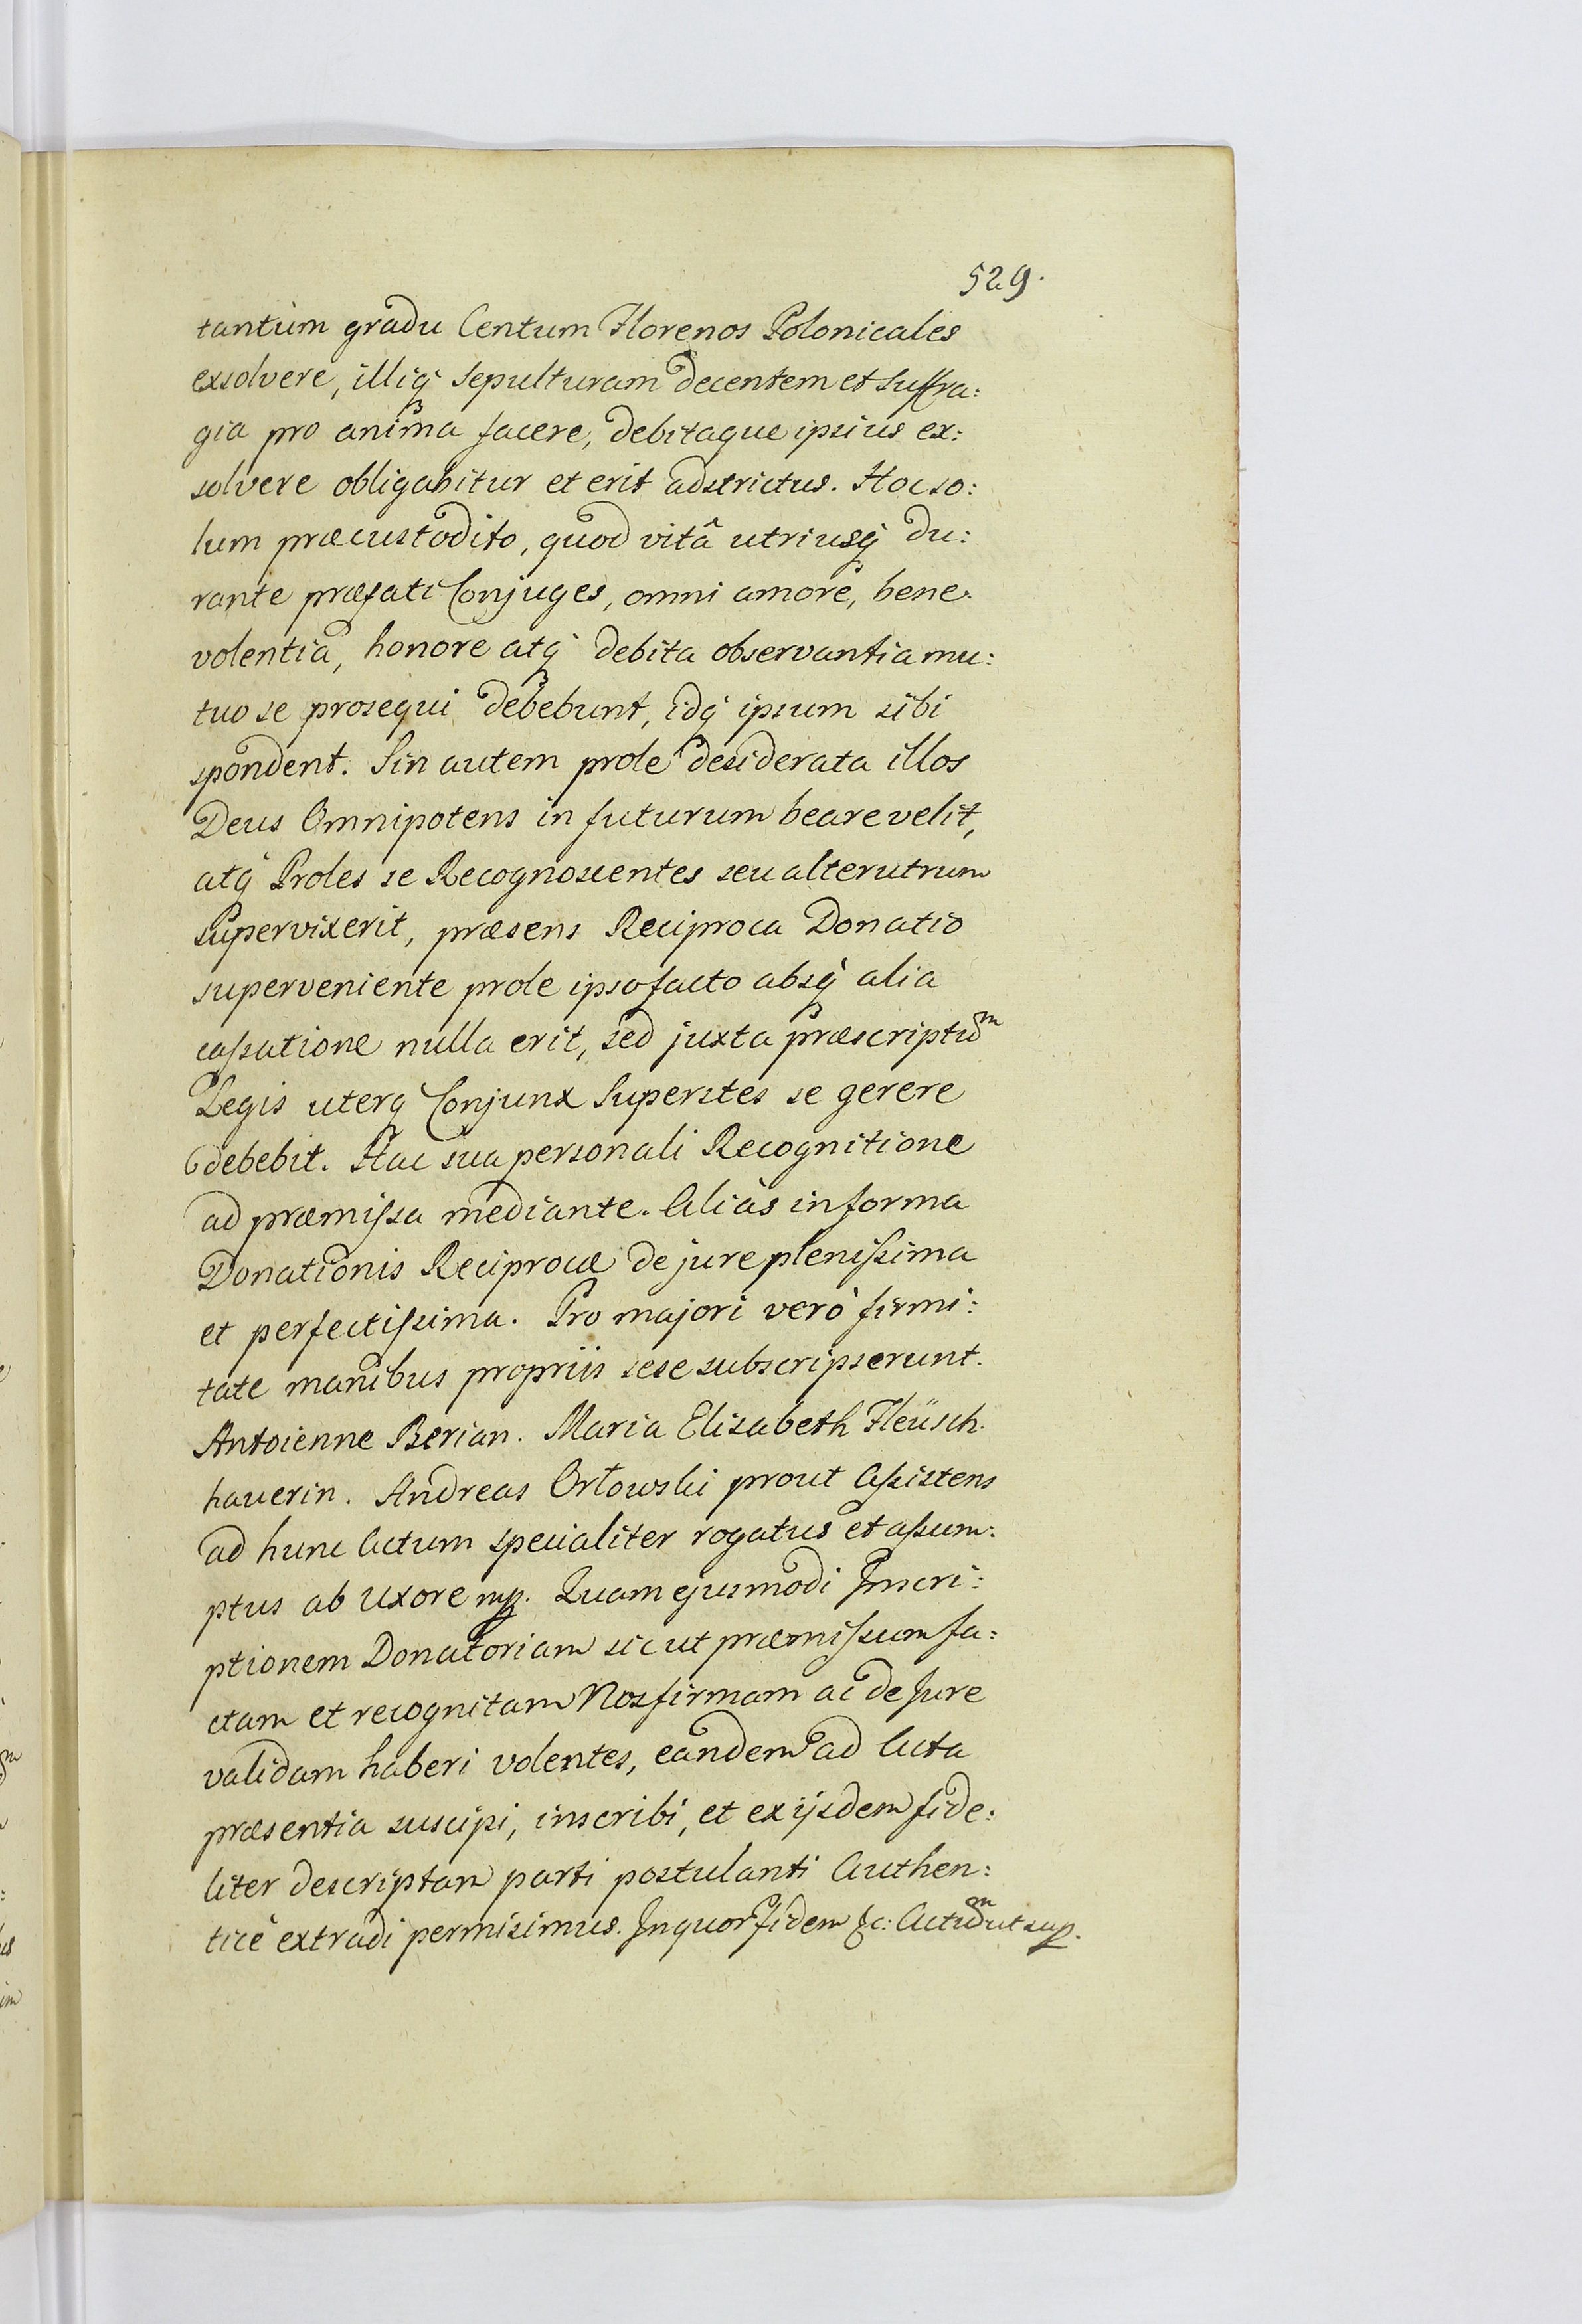 529.
tantùm gradu Centum Florenos Polonicales
exsolvere, illiq́ Sepulturam decentem et Suffra:
gia pro anima facere, debitaque ipsius ex:
solvere obligabitur et erit adstrictus. Hoc so:
lum præcustodito, quod vitâ utriusq́ du:
rante præfati Conjuges, omni amore, bene.
volentia, honore atq́ debita observantia mu:
tuo se prosequi debebunt, idq́ ipsum sibi
spondent. Sin autem prole desiderata illos
Deus Omnipotens in futurum beare velit,
atq́ Proles se Recognoscentes seu alterutrum
supervixerit, præsens Reciproca Donatio
superveniente prole ipso facto absq́ alia
cassatione nulla erit, sed juxta præscriptuͫ
Legis uterq Conjunx Superstes se gerere
debebit. Hac sua personali Recognitione
ad præmissa mediante. Aliàs in forma
Donationis Reciprocæ de jure plenissima
et perfectissima. Pro majori verò firmi:
tate manibus propriis sese subscripserunt.
Antoienne Berian. Maria Elisabeth Fleüsch.
hauerin. Andreas Orłowski prout Assistens
ad hunc Actum specialiter rogatus et assum:
ptus ab Uxore mp. Quam ejusmodi Inscri:
ptionem Donatoriam sicut præmissum fa:
ctam et recognitam Nos firmam ac de Jure
validam haberi volentes, eandem ad Acta
præsentia suscipi, inscribi, et ex ijsdem fide:
liter descriptam parti postulanti Authen:
ticè extradi permisimus. In quor fidem &c: Actuͫ ut sup.